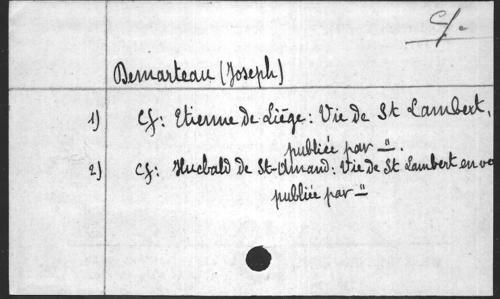 Cf.
Demarteau (Joseph)
1) Cf: Etienne de Liége: Vie de St Lambert,
publiée par ".
2) Cf: Hucbald de St-Amand: Vie de St Lambert en ve
publiée par "